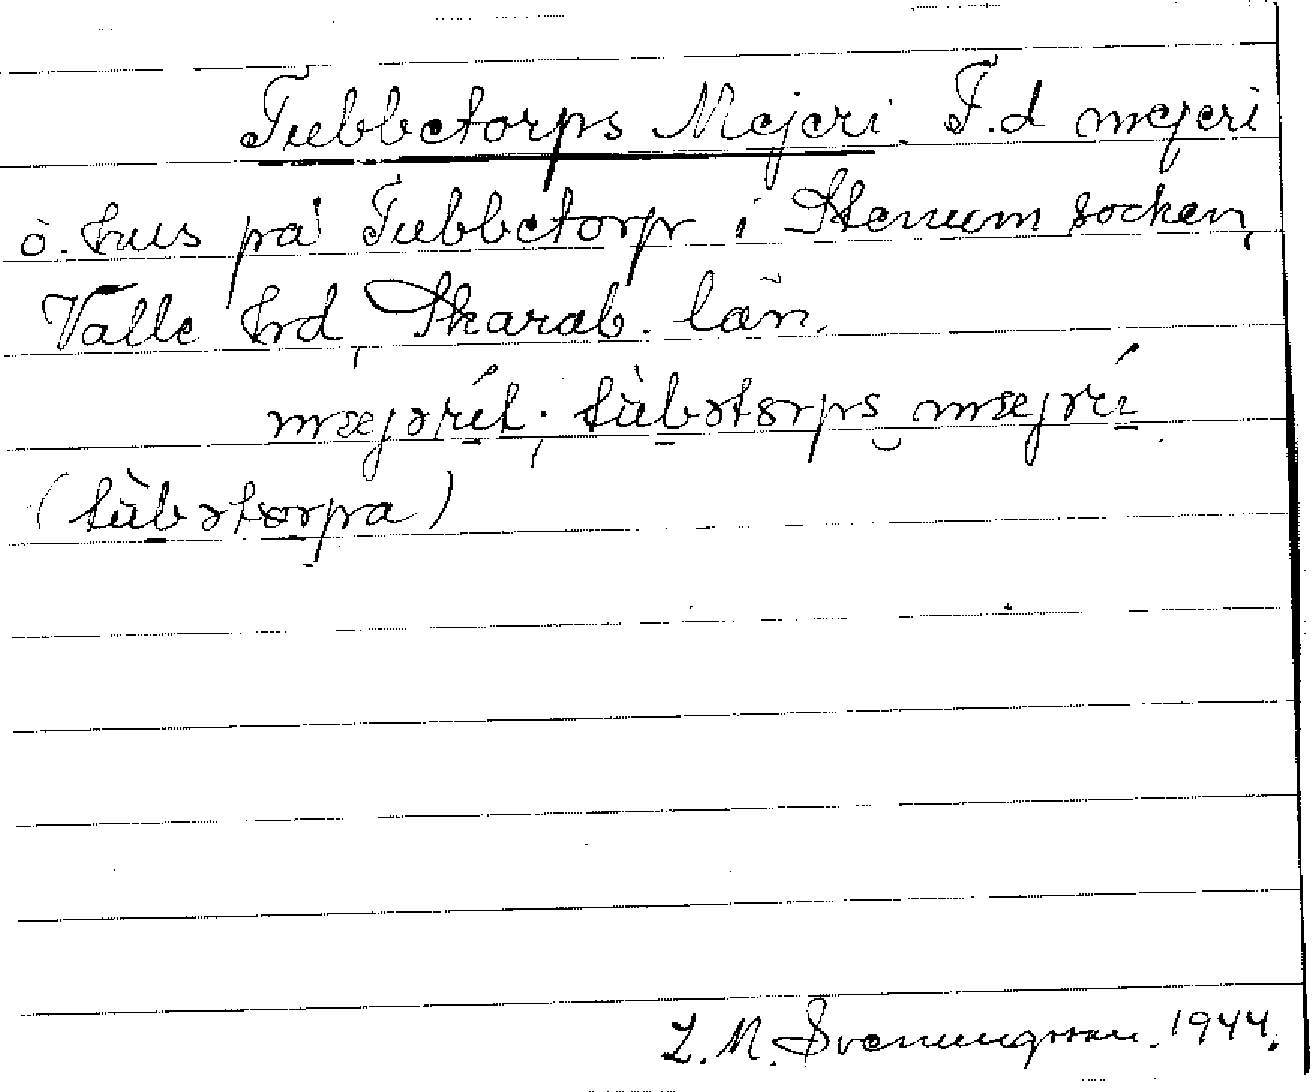 Tubbetorps Mejeri. F.d mejeri
o. hus på Tubbetorp i Stenum socken,
Valle hrd, Skarab. län.
mæjərít; tùbətorps mæjəri
(tùbətorpa)
L. M. Svenungsson. 1944.